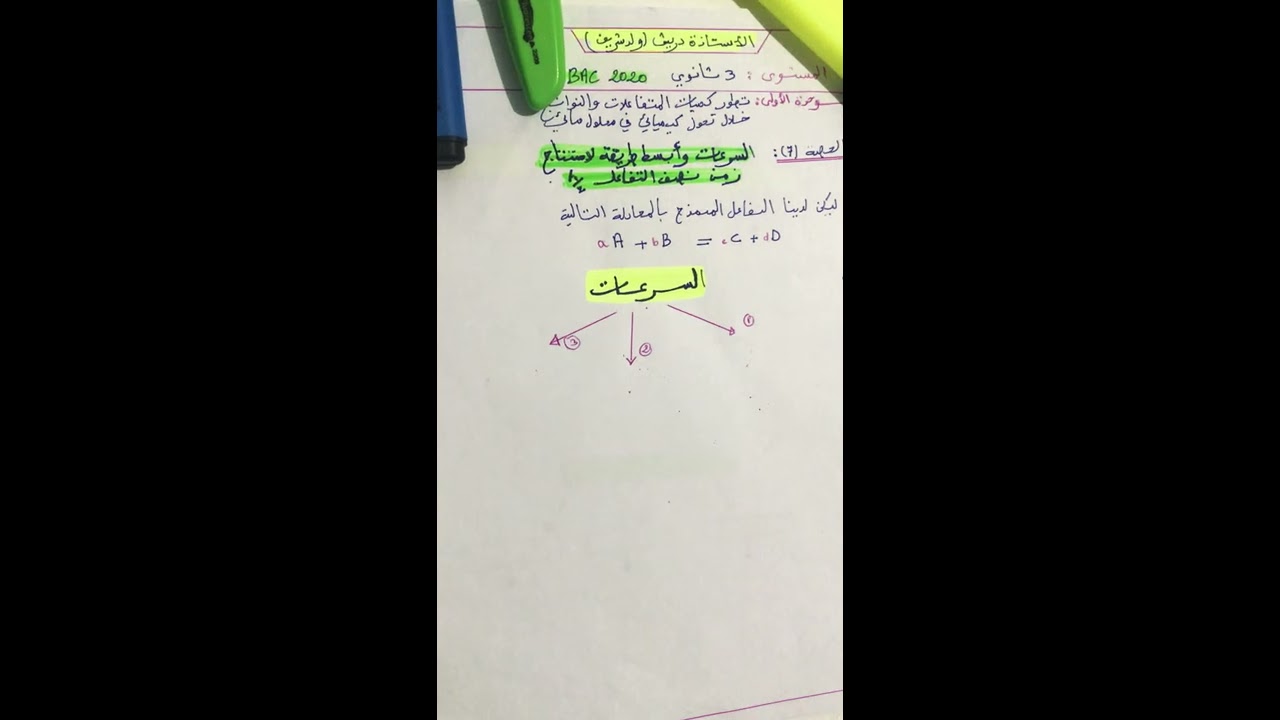 الأستاذة دريش (ولد شريف)
المستوى : 3 ثانوي BAC 2020
وحدة الأولى: تطور كميات المتفاعلات والنواتج
خلال تحول كيميائي في محلول مائي
الحصة (7): السرعات وأبسط طريقة لاستنتاج
زمن نصف التفاعل t½
ليكن لدينا التفاعل المنمذج بالمعادلة التالية
aA + bB = cC + dD
السرعات
① ② ③